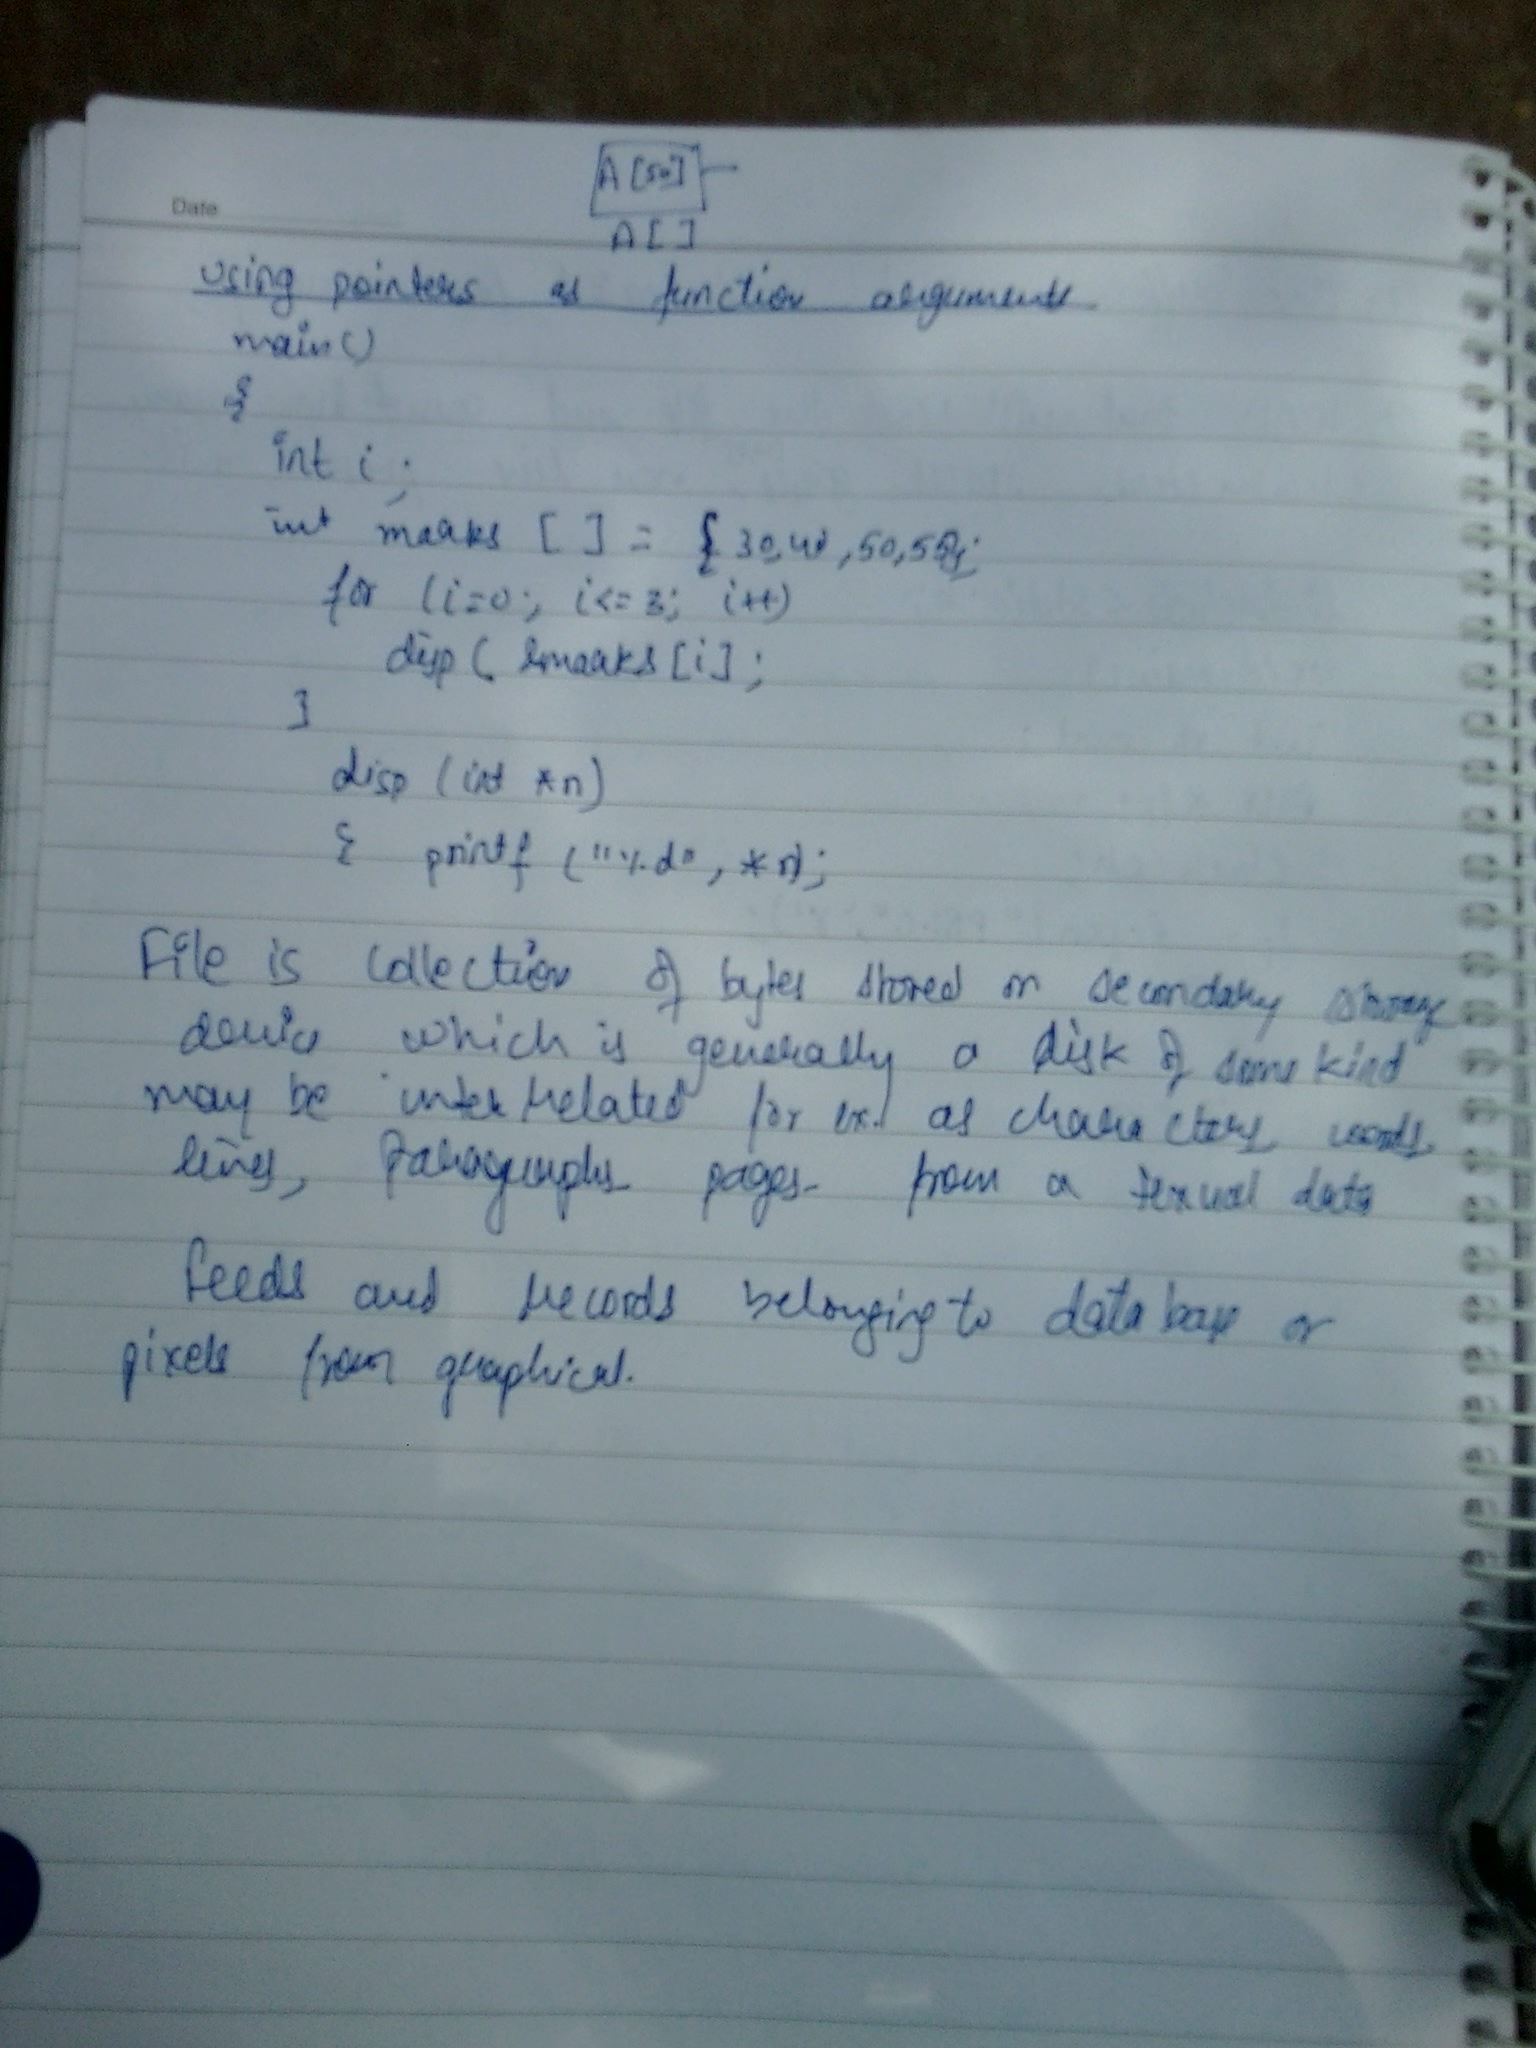 A[50]
Date
A[]
using pointers as function arguments
main()
{
int i;
int marks [ ] = { 30,40,50,55};
for (i=0; i<=3; i++)
disp( &marks[i];
}
disp (int *n)
{ printf ("%d", *n);
File is collection of bytes stored on secondary storage
device which is generally a disk of some kind
may be inter related for ex. as characters words
lines, Paragraphs pages from a texual data
feeds and records belonging to data base or
pixels from graphical.